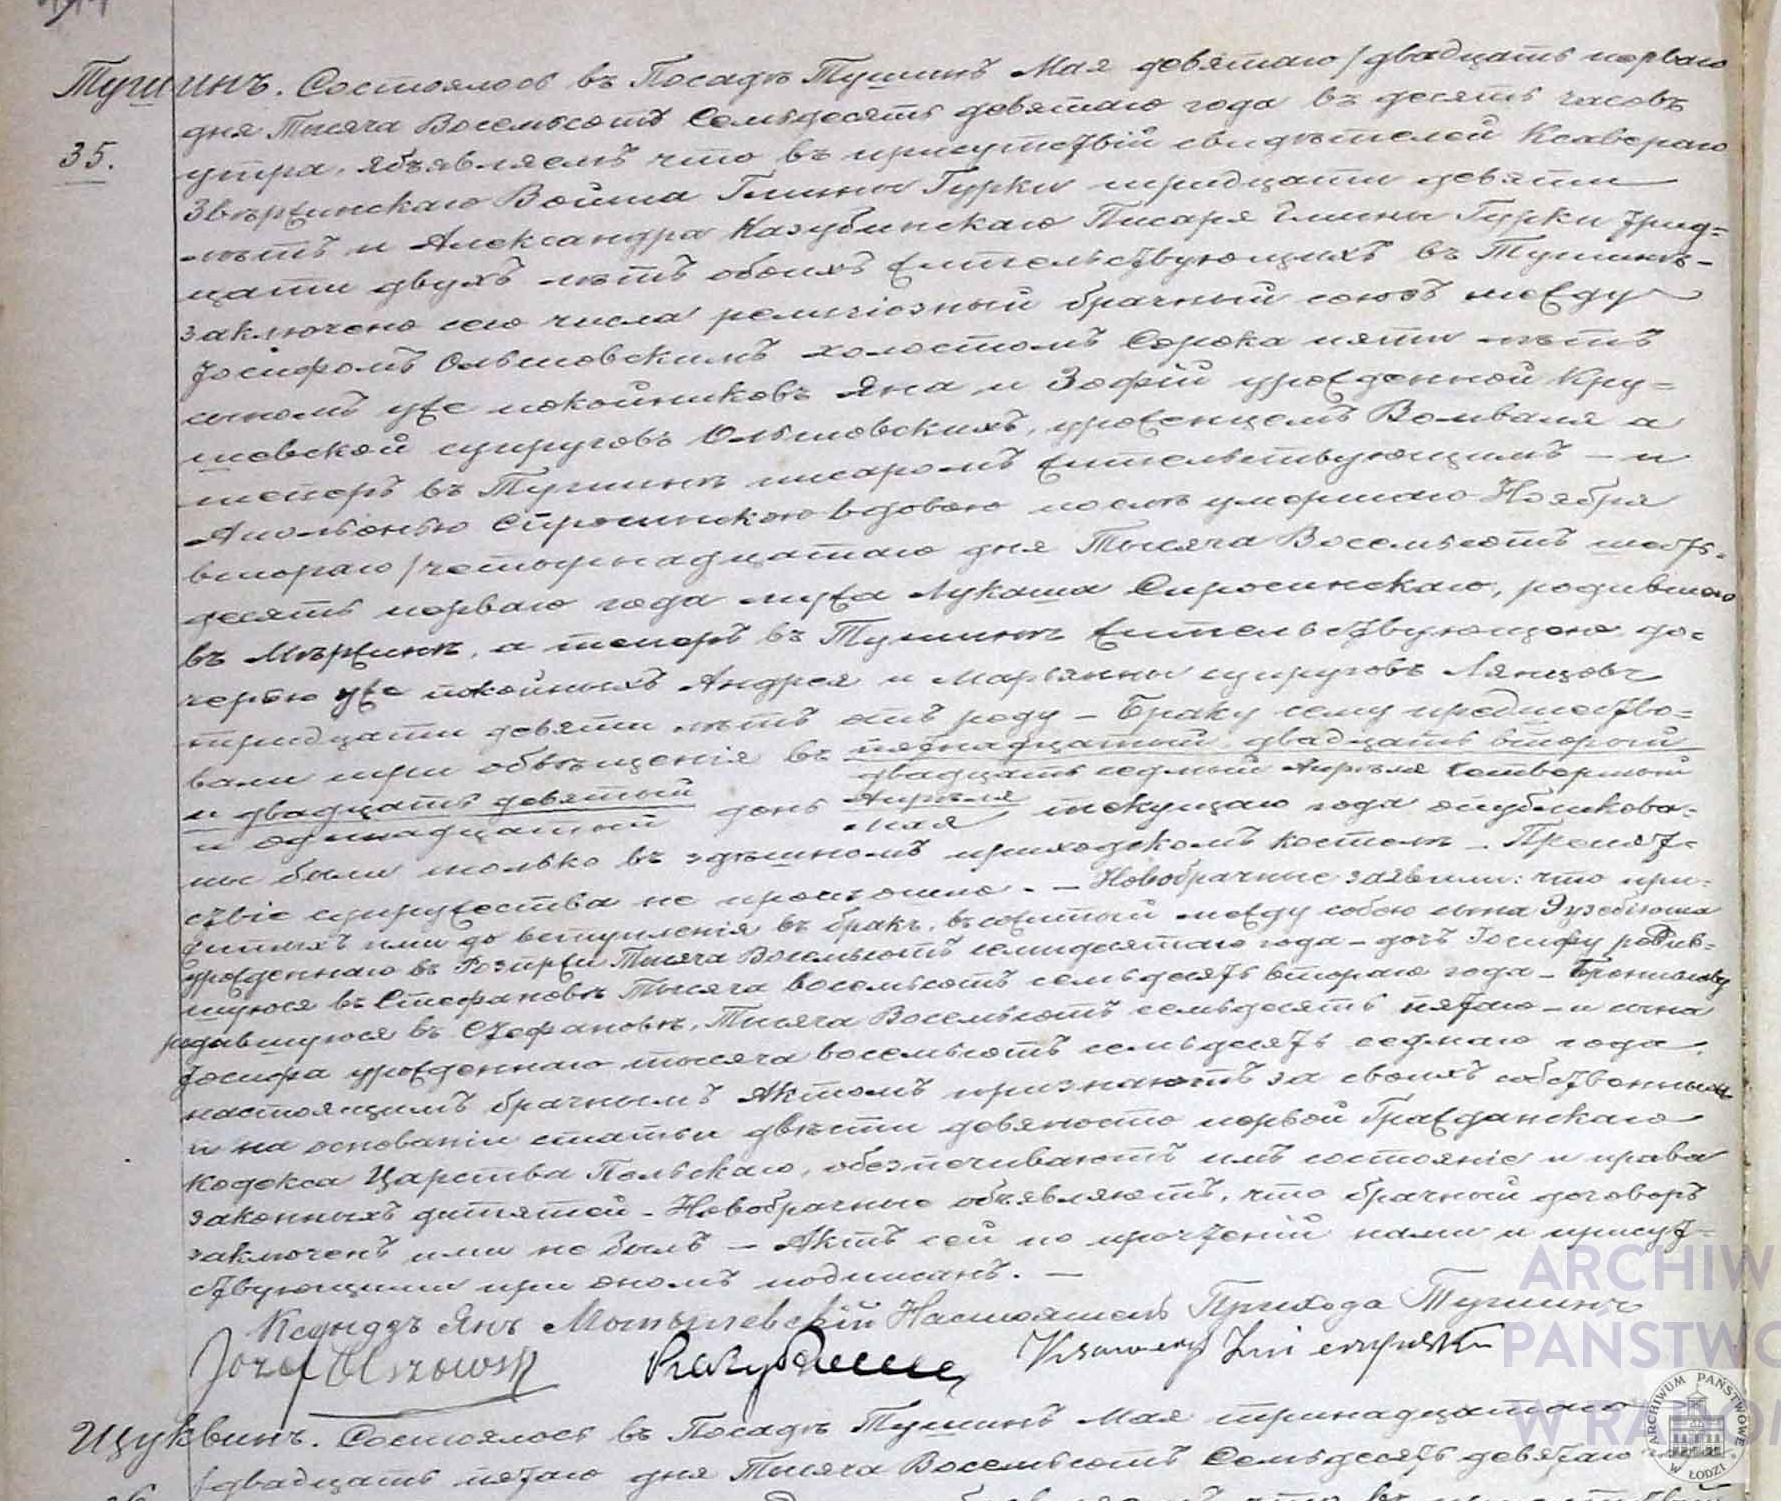 Тушинъ. Состоялось въ Посадѣ Тушинѣ Мая девятаго / двадцать перваго
35.
дня Тысяча Восемьсотъ Семьдесятъ девятаго года въ десять часовъ
утра. Объявляемъ что въ присутствіи свидѣтелей Ксавераго
Звѣржинскаго Войта Гмины Гурки тридцати девяти
лѣтъ и Александра Казубинскаго Писаря Гмины Гурки трид=
цати двухъ лѣтъ обоихъ жительствующихъ въ Тушинѣ-
заключено сего числа религіозный брачный союзъ между
Іосифомъ Ольшовскимъ холостомъ Сорока пяти лѣтъ
сыномъ уже покойниковъ Яна и Зофіи урожденной Кру=
шевской супруговъ Ольшовскихъ, уроженцемъ Вомваля а
теперь въ Тушинѣ писаромъ жительствующимъ - и
Аполонію вдовою послѣ умершаго Ноября
втораго / четырнадцатаго дня Тысяча Восемьсотъ шесть-
десятъ перваго года мужа Лукаша родившею
въ Мѣржинѣ, а теперь въ Тушинѣ жительствующею до=
черью уже покойныхъ Андрея и Маріянны супруговъ
тридцати девяти лѣтъ отъ роду - Браку сему предшество=
вали три объвѣщенія въ пятнадцатый двадцать второй
двадцать седмый Апрѣля четвертый
и двадцать девятый день Апрѣля текущаго года опубликова=
и одинадцатый Мая
ны были только въ здѣшномъ приходскомъ костелѣ - Препят=
ствіе супружества не произошло. - Новобрачные заявили: что при=
житыхъ ими до вступленія въ бракъ, въ между собою сына Эузебіюша
урожденнаго въ Розпржи Тысяча Восемьсотъ семидесятаго года - дочь Іосифу родив=
шуюся въ Стефановѣ Тысяча восемьсотъ семьдесятъ втораго года - Брониславу
родившуюся въ Стефановѣ, Тысяча Восемьсотъ семьдесятъ пятаго - и сына
Іосифа урожденнаго тысяча восемьсотъ семьдесятъ седмаго года.
настоящимъ брачнымъ Актомъ признаютъ за своихъ собственныхъ
и на основаніи статьи двѣсти девяносто первой Гражданскаго
Кодекса Царства Польскаго, обезпечиваютъ имъ состояніе и права
законныхъ дитятей - Новобрачные объявляютъ, что брачный договоръ
заключенъ ими не былъ - Актъ сей по прочтеніи нами и присут=
ствующими при ономъ подписанъ. -
Ксендзъ Янъ Настоятель Прихода Тушинъ
Józef Olszowski
Щуквинъ. Состоялось въ Посадѣ Тушинѣ Мая тринадцатаго
/ двадцать пятаго дня Тысяча Восемьсотъ Семьдесятъ девятаго
ARCHIWUM PAŃSTWOWE W ŁODZI
ARCHIW
PAŃSTWO
W RADOM